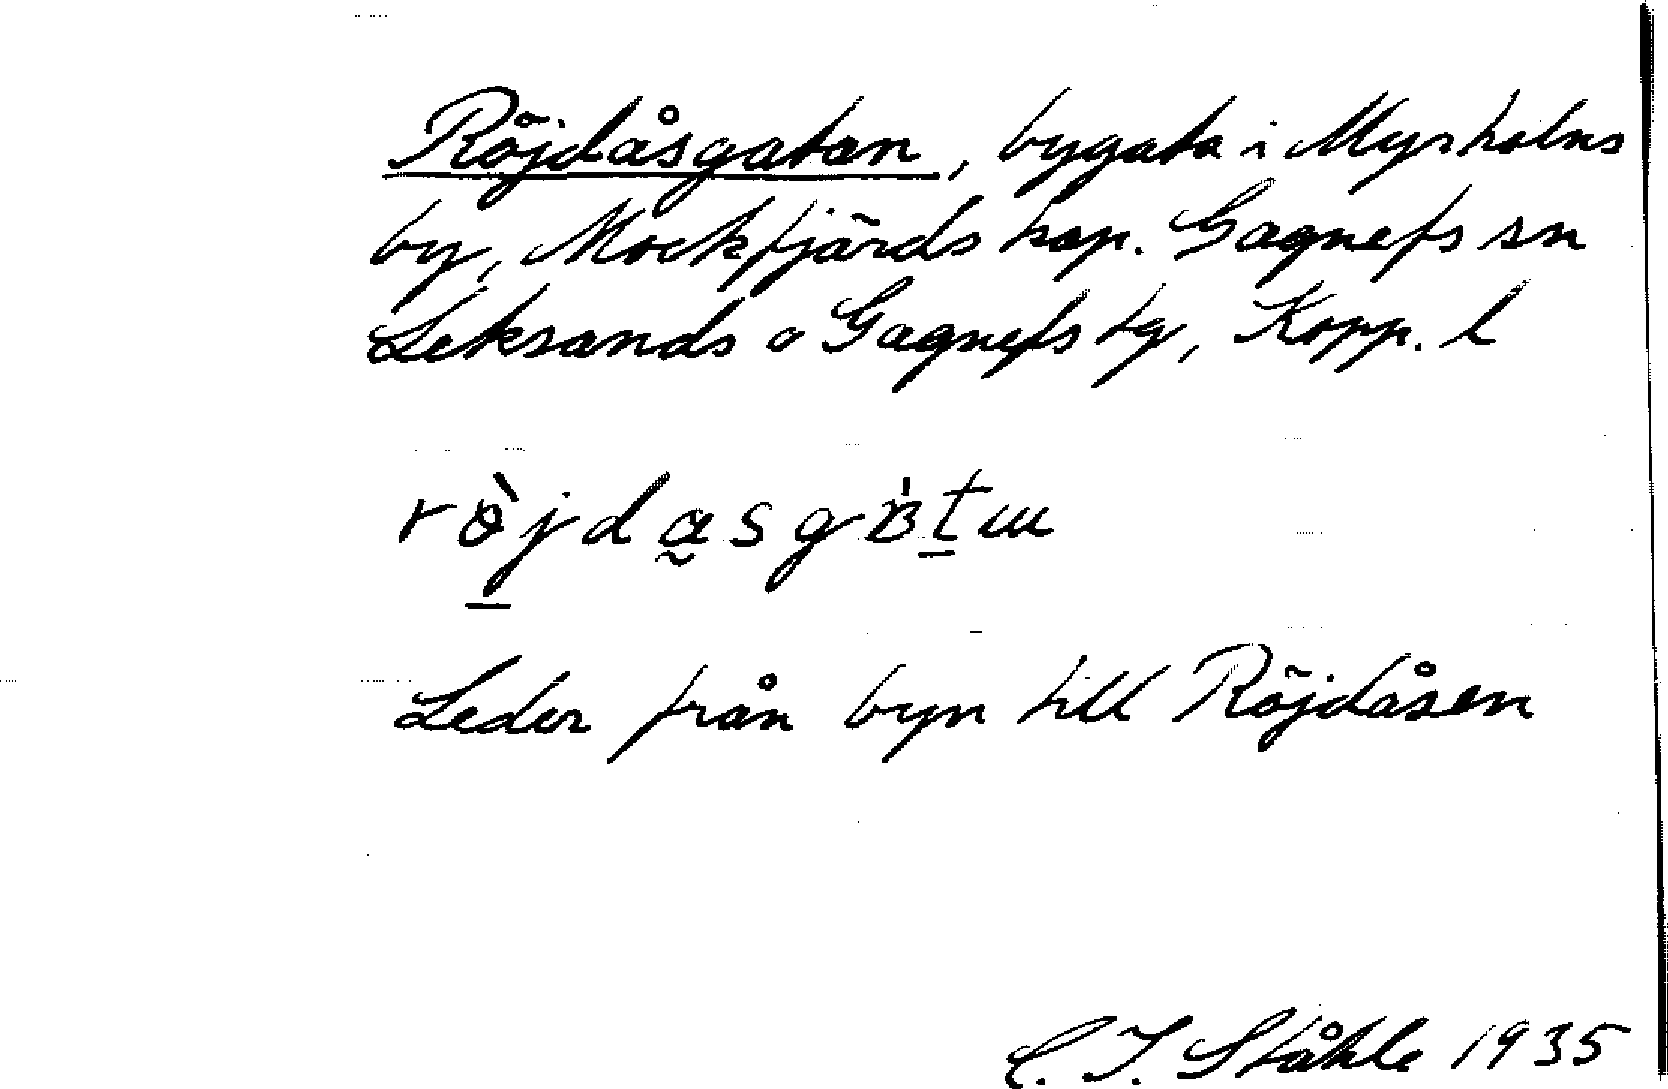 Röjdåsgatan, bygata i Myrholns
by, Mockfjärds kap. Gagnefs sn
Leksands o Gagnefs tg, Kopp. l
Leder från byn till Röjdåsen
C. I. Ståhle 1935